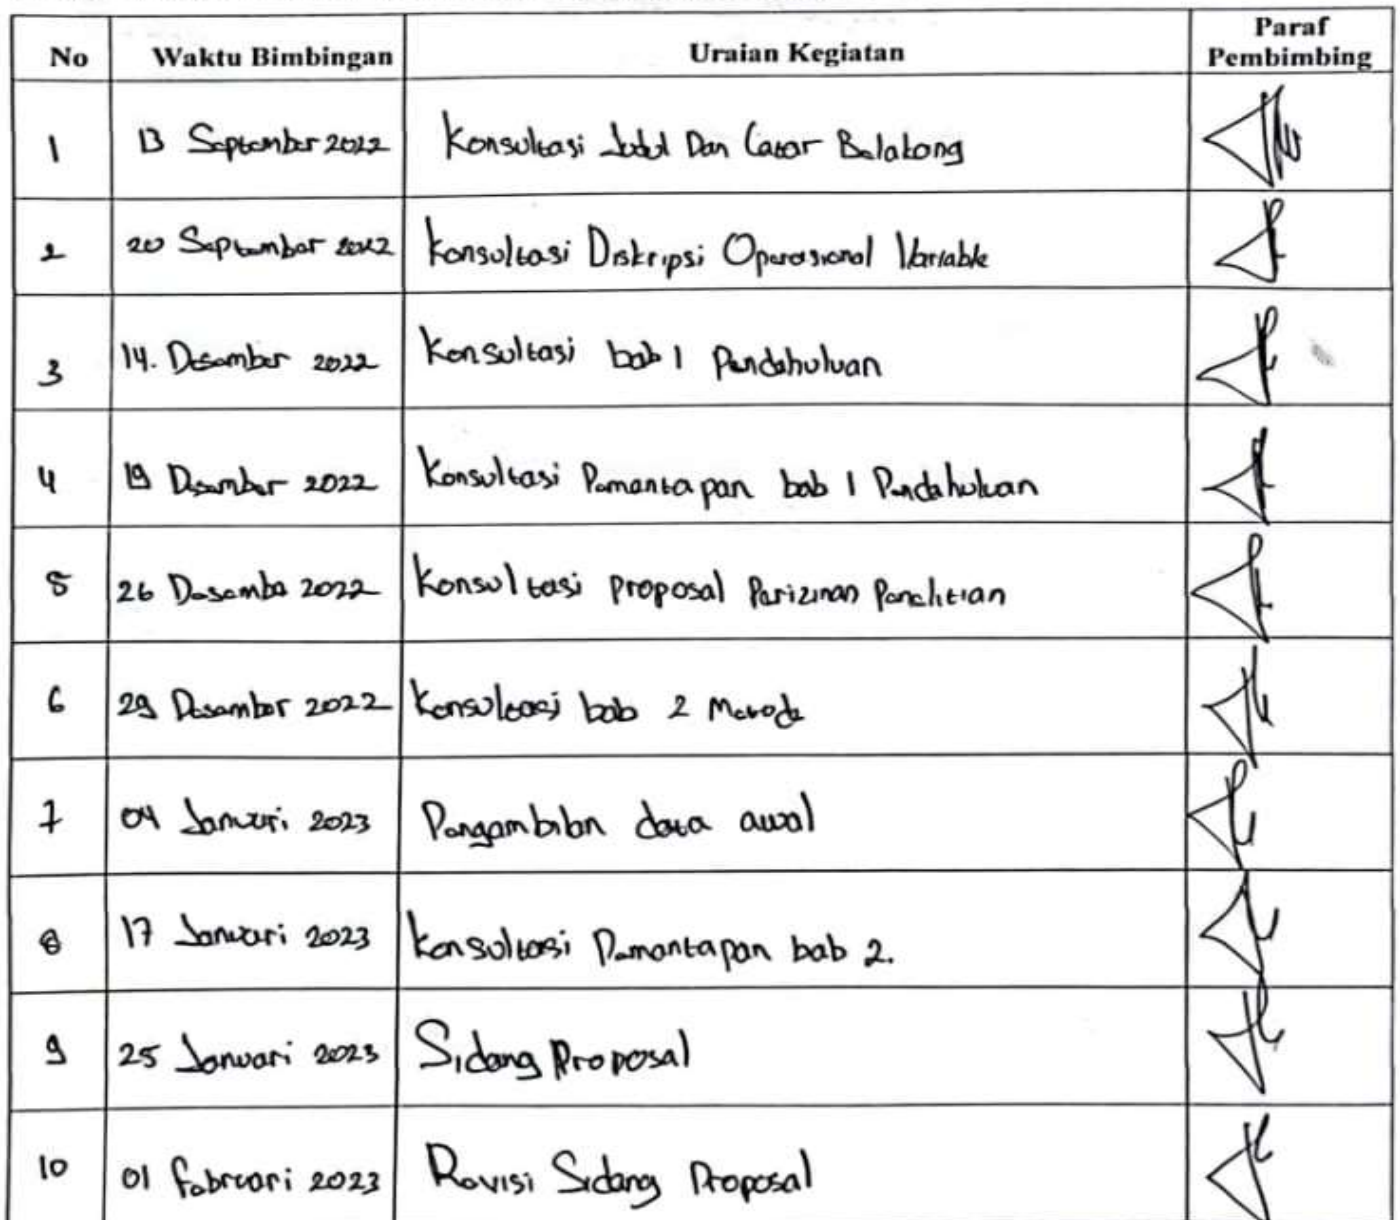 No Waktu Bimbingan Uraian Kegiatan Paraf Pembimbing
1 13 September 2022 Konsultasi Judul Dan Latar Belakang
2 20 September 2022 Konsultasi Diskripsi Operasional Variable
3 14. Desember 2022 Konsultasi bab 1 Pendahuluan
4 19 Desember 2022 Konsultasi Pemantapan bab 1 Pendahuluan
5 26 Desembe 2022 Konsultasi proposal Perizinan Penelitian
6 29 Desember 2022 Konsultasi bab 2 Metode
7 04 Januari 2023 Pengambilan data awal
8 17 Januari 2023 Konsultasi Pemantapan bab 2.
9 25 Januari 2023 Sidang Proposal
10 01 Februari 2023 Revisi Sidang Proposal